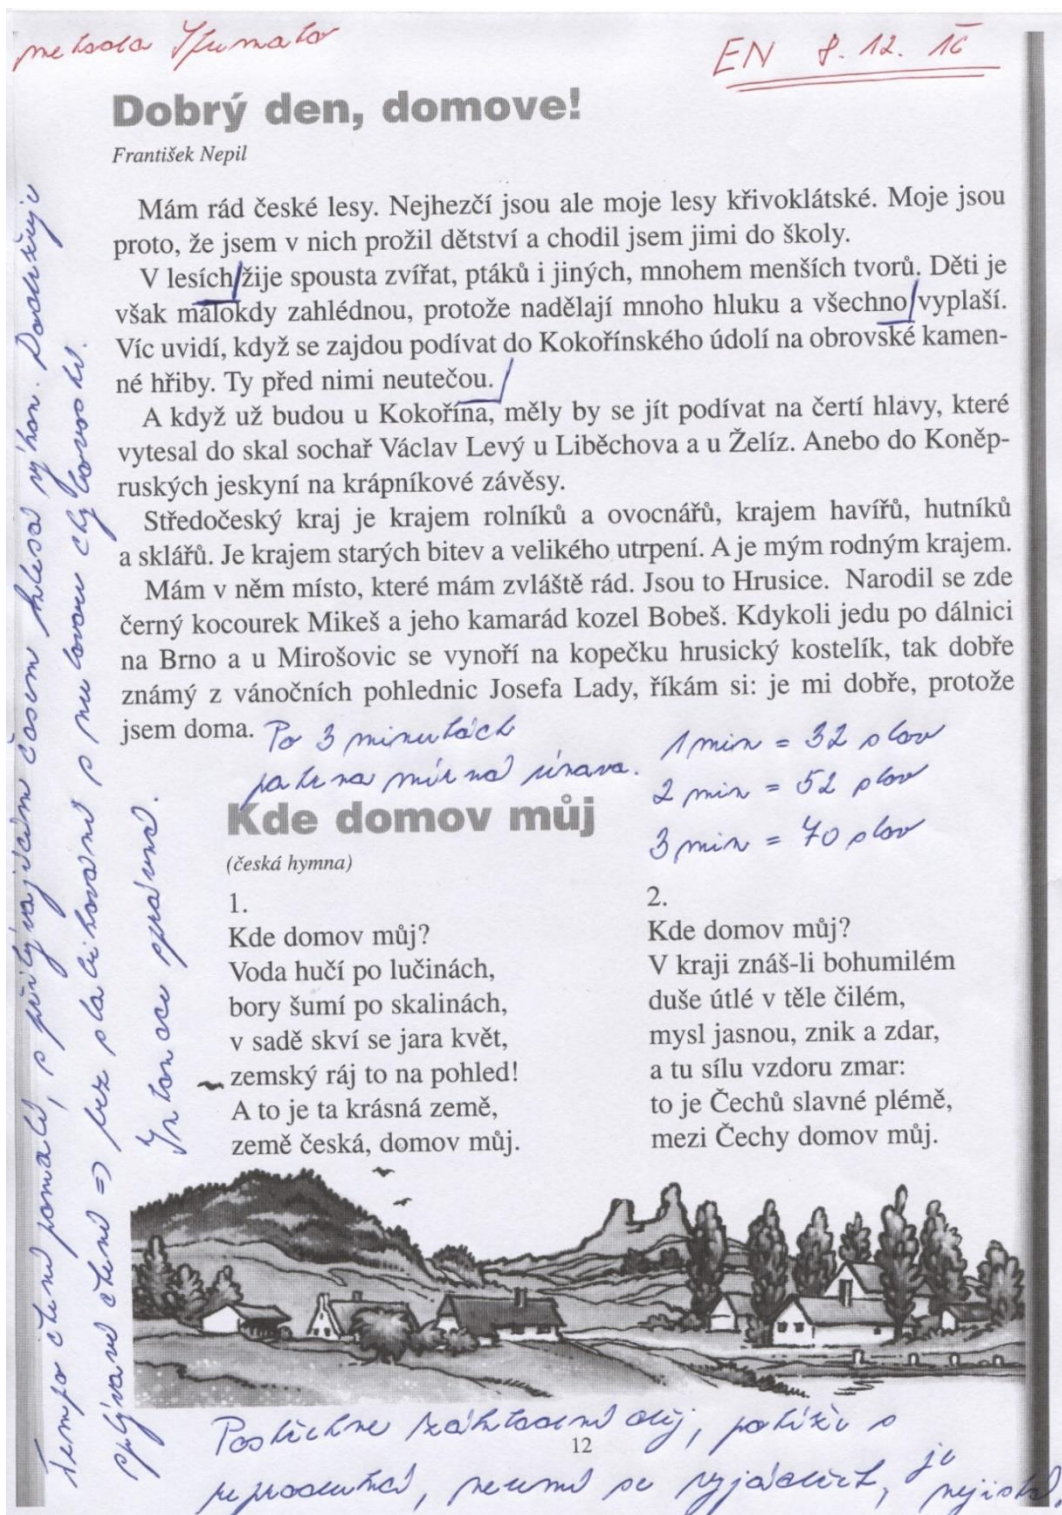 metoda Sfumato
EN 8. 12. 16
Dobrý den, domove!
František Nepil
Mám rád české lesy. Nejhezčí jsou ale moje lesy křivoklátské. Moje jsou
proto, že jsem v nich prožil dětství a chodil jsem jimi do školy.
V lesích/žije spousta zvířat, ptáků i jiných, mnohem menších tvorů. Děti je
však málokdy zahlédnou, protože nadělají mnoho hluku a všechno/vyplaší.
Víc uvidí, když se zajdou podívat do Kokořínského údolí na obrovské kamen-
né hřiby. Ty před nimi neutečou./
A když už budou u Kokořína, měly by se jít podívat na čertí hlavy, které
vytesal do skal sochař Václav Levý u Liběchova a u Želíz. Anebo do Koněp-
ruských jeskyní na krápníkové závěsy.
Středočeský kraj je krajem rolníků a ovocnářů, krajem havířů, hutníků
a sklářů. Je krajem starých bitev a velikého utrpení. A je mým rodným krajem.
Mám v něm místo, které mám zvláště rád. Jsou to Hrusice. Narodil se zde
černý kocourek Mikeš a jeho kamarád kozel Bobeš. Kdykoli jedu po dálnici
na Brno a u Mirošovic se vynoří na kopečku hrusický kostelík, tak dobře
známý z vánočních pohlednic Josefa Lady, říkám si: je mi dobře, protože
jsem doma.
Po 3 minutách
patrna mírná únava.
1 min = 32 slov
2 min = 52 slov
3 min = 70 slov
Kde domov můj
(česká hymna)
1.
Kde domov můj?
Voda hučí po lučinách,
bory šumí po skalinách,
v sadě skví se jara květ,
zemský ráj to na pohled!
A to je ta krásná země,
země česká, domov můj.
2.
Kde domov můj?
V kraji znáš-li bohumilém
duše útlé v těle čilém,
mysl jasnou, znik a zdar,
a tu sílu vzdoru zmar:
to je Čechů slavné plémě,
mezi Čechy domov můj.
Tempo čtení pomalé, s přibývajícím časem klesá výkon.
splývavé čtení => bez slabikování s minulovou chybovostí.
Intonace správná.
Postihne základní děj, potíže s
12
reprodukcí, neumí se vyjádřit, je nejistá.